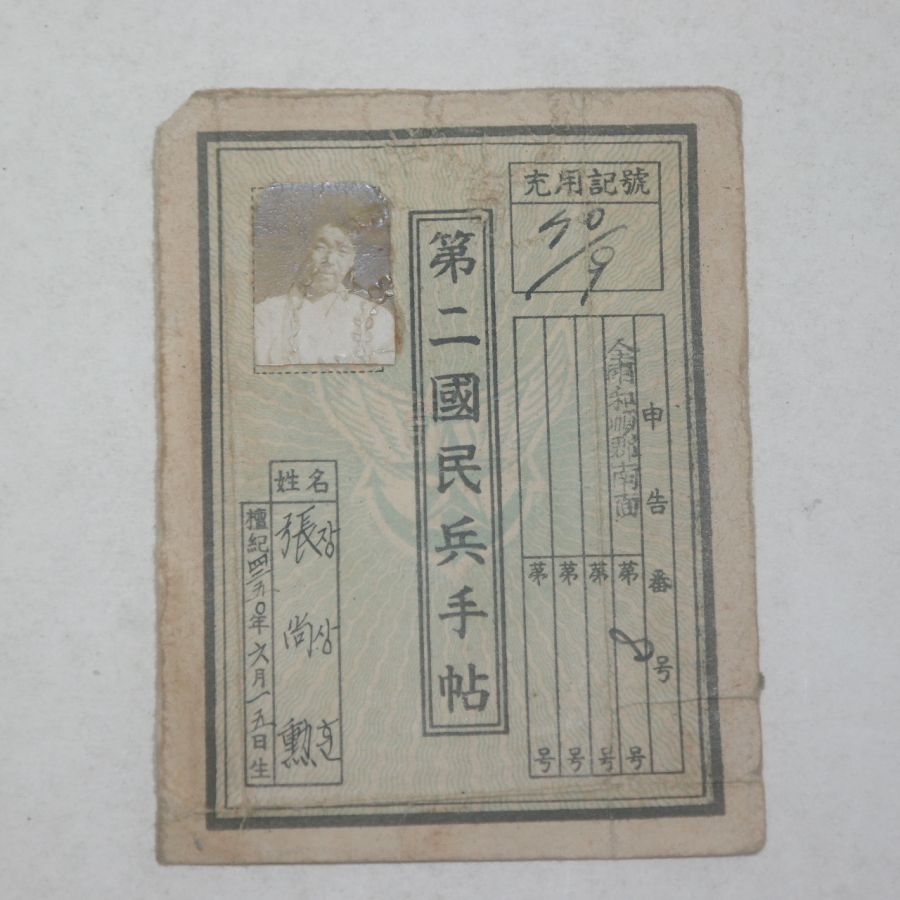 充用記號
40/9
申告番号
全南和順郡南面
第 2 号
第 号
第 号
第 号
第二國民兵手帖
姓名
張尚勳
장상훈
檀紀四二五〇年六月一五日生